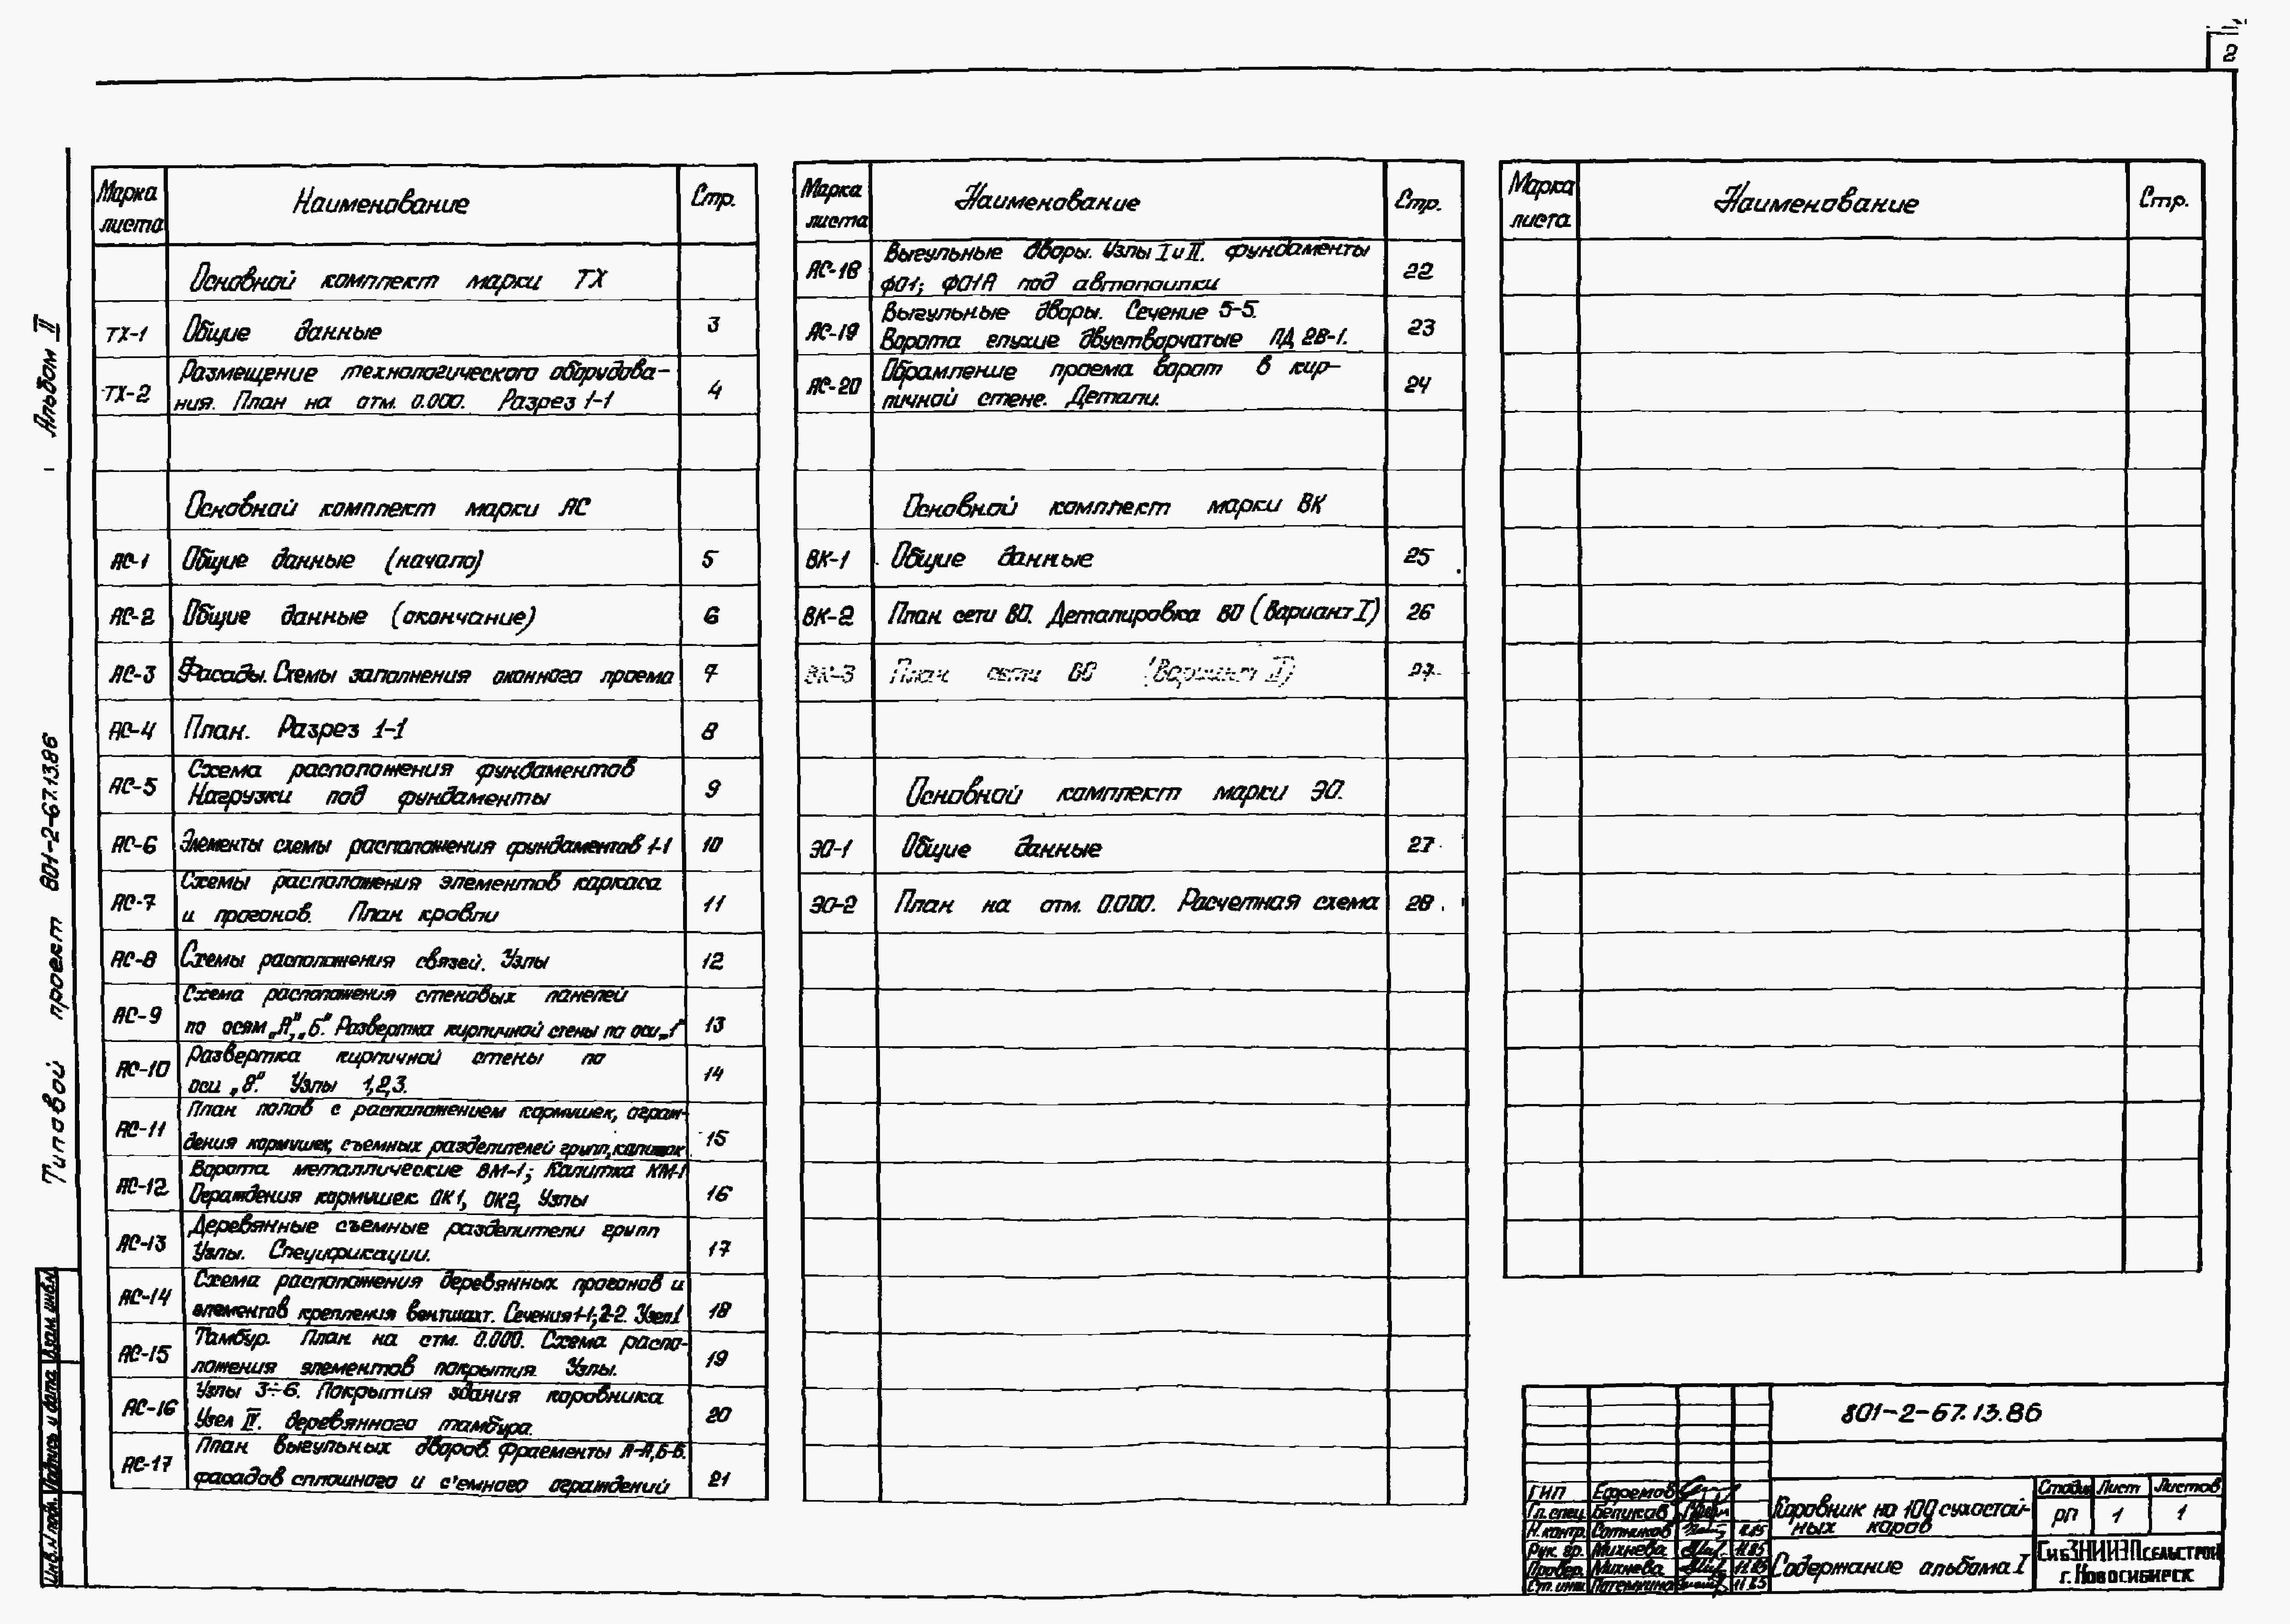 2
Альбом II
Типовой проект 801-2-67.13.86
Взам. инв. №
Подпись и дата
Инв. № подл.
Марка листа Наименование Стр.
Основной комплект марки ТХ
ТХ-1 Общие данные 3
ТХ-2 Размещение технологического оборудова-
ния. План на отм. 0.000. Разрез 1-1 4
Основной комплект марки АС
АС-1 Общие данные (начало) 5
АС-2 Общие данные (окончание) 6
АС-3 Фасады. Схемы заполнения оконного проема 7
АС-4 План. Разрез 1-1 8
АС-5 Схема расположения фундаментов
Нагрузки под фундаменты 9
АС-6 Элементы схемы расположения фундаментов 1-1 10
АС-7 Схемы расположения элементов каркаса
и прогонов. План кровли 11
АС-8 Схемы расположения связей. Узлы 12
АС-9 Схема расположения стеновых панелей
по осям „А”, „Б”. Развертка кирпичной стены по оси „1” 13
АС-10 Развертка кирпичной стены по
оси „8”. Узлы 1,2,3. 14
АС-11 План полов с расположением кормушек, ограж-
дения кормушек, съемных разделителей групп, калиток 15
АС-12 Ворота металлические ВМ-1; Калитка КМ-1
Ограждения кормушек ОК1, ОК2, Узлы 16
АС-13 Деревянные съемные разделители групп
Узлы. Спецификации. 17
АС-14 Схема расположения деревянных прогонов и
элементов крепления вентшахт. Сечения 1-1; 2-2. Узел 1 18
АС-15 Тамбур. План на отм. 0.000. Схема распо-
ложения элементов покрытия. Узлы. 19
АС-16 Узлы 3÷6. Покрытия здания коровника
Узел IV. деревянного тамбура. 20
АС-17 План выгульных дворов. Фрагменты А-А, Б-Б.
фасадов сплошного и с'емного ограждений 21
Марка листа Наименование Стр.
АС-18 Выгульные дворы. Узлы I и II. Фундаменты
Ф01; Ф01А под автопоилки 22
АС-19 Выгульные дворы. Сечение 5-5.
Ворота глухие двустворчатые ПД 2В-1. 23
АС-20 Обрамление проема ворот в кир-
пичной стене. Детали. 24
Основной комплект марки ВК
ВК-1 Общие данные 25
ВК-2 План сети ВО. Деталировка ВО (Вариант I) 26
ВК-3 План сети ВО (Вариант II) 27
Основной комплект марки ЭО.
ЭО-1 Общие данные 27
ЭО-2 План на отм. 0.000. Расчетная схема 28
Марка листа Наименование Стр.
801-2-67.13.86
ГИП Ефремов
Гл. спец. Беликов
Н. контр. Сотников 11.85
Рук. гр. Михнева 11.85
Провер. Михнева 11.85
Ст. инж. Потемкина 11.85
Коровник на 100 сухостой-
ных коров
Содержание альбома I
Стадия Лист Листов
РП 1 1
СибЗНИИЭПсельстрой
г. Новосибирск